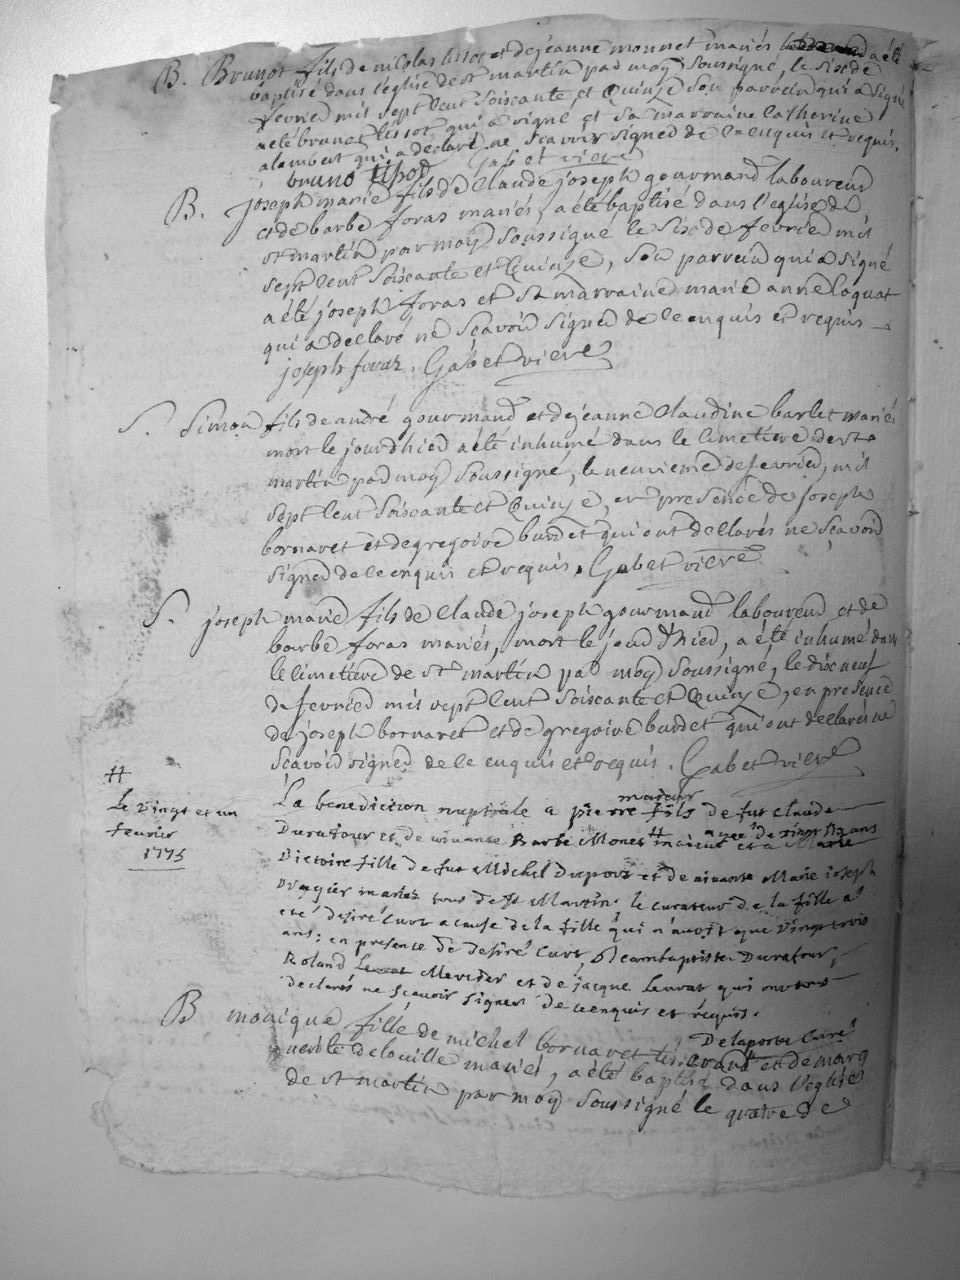 B. Brunot fils de nicolas tissot et de jeanne monnet mariés a été
baptisé dans l'eglise de st martin par moy soussigné, le sise de
fevrie mil sept cent soiscante et quinze son parrein qui a signé
a été brunot tissot qui a signé et sa marraine catherine
alombert qui a declaré ne scavoir signer de ce enquis et requis.
bruno tissot Gabet vicre
B. joseph marie fils de Claude joseph gourmand laboureur
et de barbe foras mariés, a été baptisé dans l'eglise de
st martin par moy soussigné le sise de fevrier mil
sept cent soiscante et quinze, son parrein qui a signé
a été joseph foras et sa marraine marie anne loquat
qui a declaré ne scavoir signer de ce enquis et requis
joseph foraz. Gabet vicre
S. Simon fils de andré gourmand et de jeanne Claudine barlet mariés
mort le jour d'hier a été inhumé dans le cimetiere de st
martin par moy soussigné, le neuvieme de fevrier, mil
sept cent soiscante et quinze, en presence de joseph
bornaret et de gregoire burdet qui ont declarés ne scavoir
signer de ce enquis et requis. Gabet vicre
S. joseph marie fils de Claude joseph gourmand laboureur et de
barbe foras mariés, mort le jour d'hier, a été inhumé dans
le cimetiere de st martin par moy soussigné, le dixneuf
de fevrier mil sept cent soiscante et quinze, en presence
de joseph bornaret et de gregoire burdet qui ont declarés ne
scavoir signer de ce enquis et requis. Gabet vicre
#
Le vingt et un
fevrier
1775
La benediction nuptiale a pierre majeur fils de fut claude
Duratour et de vivante Barbe Monet # et a Marie
Victoire fille de fut Michel Dupont et de vivante Marie joseph
mariez tous de st Martin. le curateur de la fille a
eté desiré Curt a cause de la fille qui n'avoit que vingt trois
ans; en presence de desiré Curt, de jeanbaptiste Duratour,
Roland Mercier et de jacque Levrat qui ont
declarés ne scavoir signer de ce enquis et requis.
Delaporte Curé
B monique fille de michel bornaret et de marg
uerite delouille mariés, a été baptisé dans l'eglise
de st martin par moy soussigné le quatre de